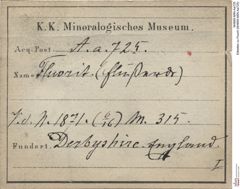 K. K. Mineralogisches Museum.
Acq.-Post A. a. 725.
Name Fluorit. (Flußerde)
V. d. N. 1871. (6/16) M. 315.
Fundort. Derbyshire England
I